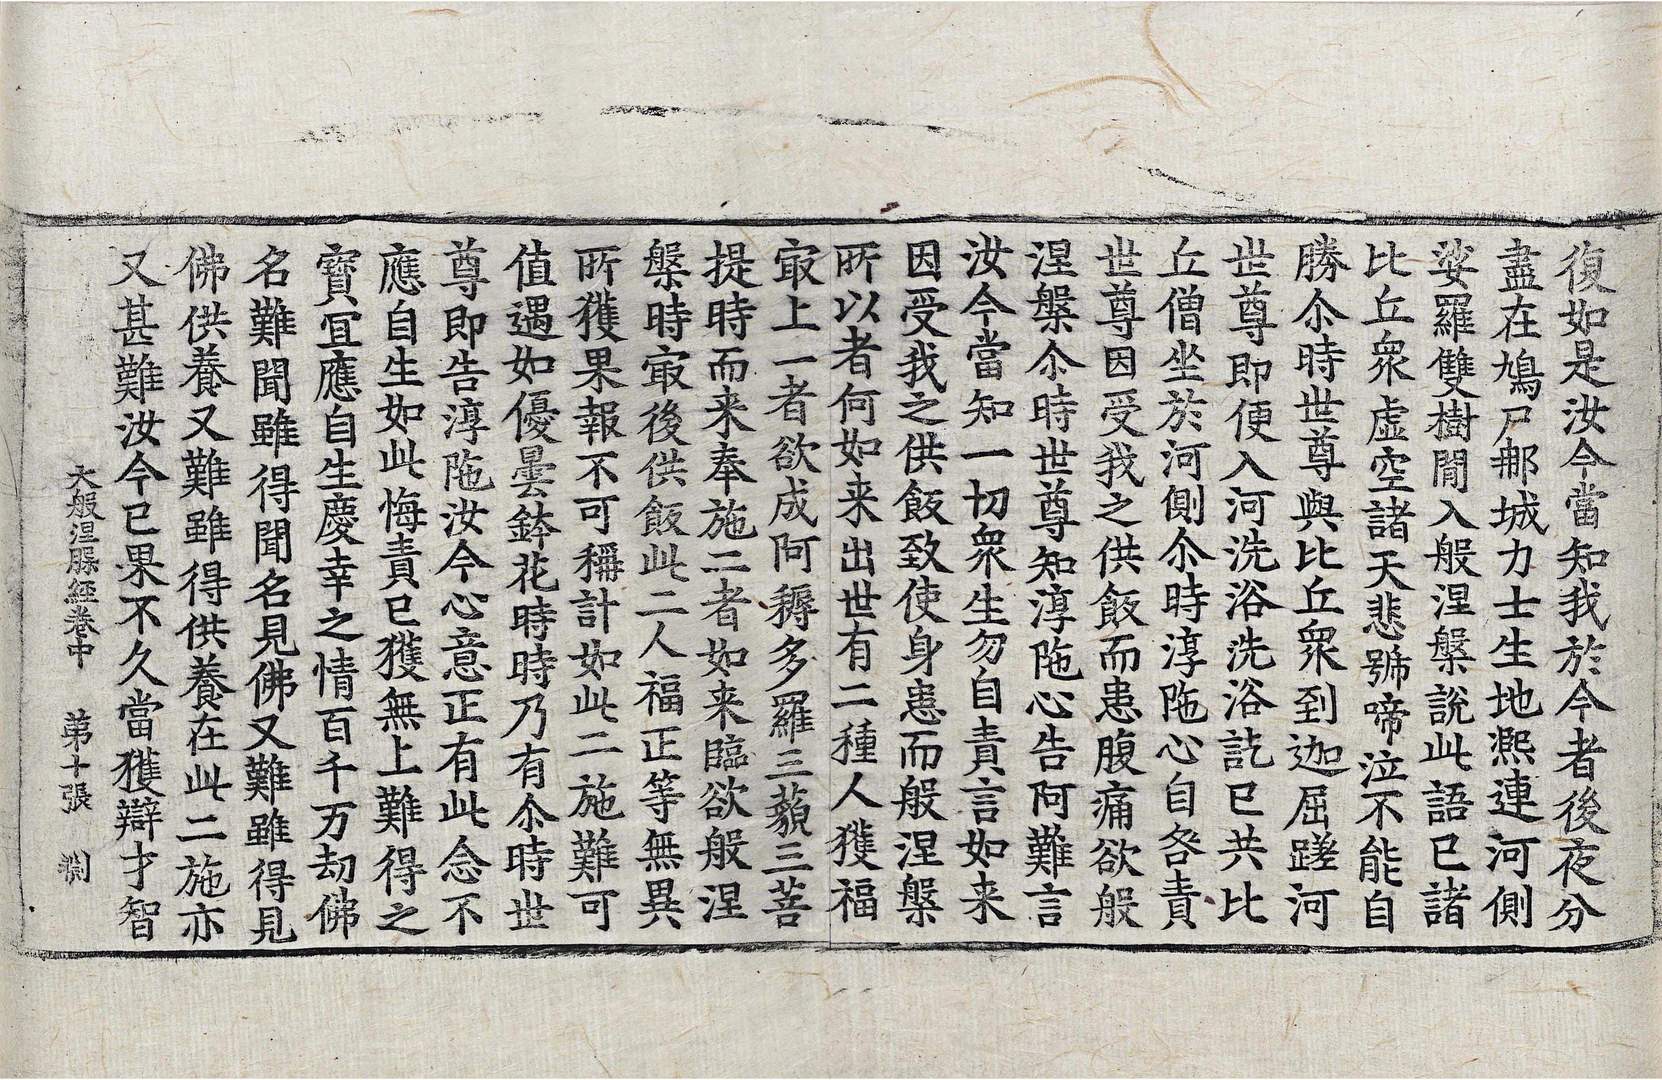 復如是汝今當知我於今者後夜分
盡在鳩尸那城力士生地熈連河側
娑羅雙樹閒入般涅槃說此語已諸
比丘衆虛空諸天悲號啼泣不能自
勝尒時世尊與比丘衆到迦屈蹉河
世尊即便入河洗浴洗浴訖已共比
丘僧坐於河側尒時淳陁心自咎責
世尊因受我之供飯而患腹痛欲般
涅槃尒時世尊知淳陁心告阿難言
汝今當知一切衆生勿自責言如来
因受我之供飯致使身患而般涅槃
所以者何如来出世有二種人獲福
㝡上一者欲成阿耨多羅三藐三菩
提時而来奉施二者如来臨欲般涅
槃時㝡後供飯此二人福正等無異
所獲果報不可稱計如此二施難可
值遇如優曇鉢花時時乃有尒時世
尊即告淳陁汝今心意正有此念不
應自生如此悔責已獲無上難得之
寶冝應自生慶幸之情百千万劫佛
名難聞雖得聞名見佛又難雖得見
佛供養又難雖得供養在此二施亦
又甚難汝今已果不久當獲辯才智
大般涅槃経卷中 第十張